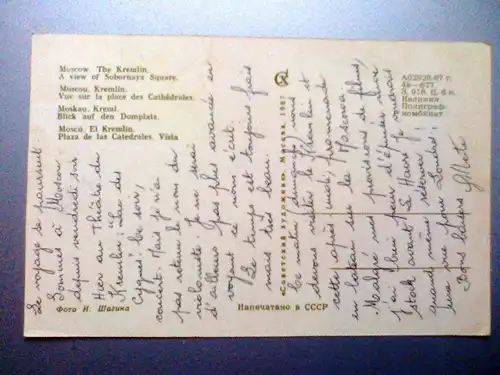 Moscow. The Kremlin.
A view of Sobornaya Square.
Moscou. Kremlin.
Vue sur la place des Cathédrales.
Moskau. Kreml.
Blick auf den Domplatz.
Moscú. El Kremlin.
Plaza de las Catedrales. Vista
Фото Н. Шагина
«Советский художник». Москва. 1967
Напечатано в СССР
Калинин
Полиграф-
комбинат
Le voyage se poursuit
Sommes à Moscou
depuis vendredi soir
Hier au Théâtre du
Kremlin "Lac des
Cygnes" ce soir,
concert. Mais je n'ai
pas retenu le nom du
violoniste. Je ne
d'ailleurs pas plus avancée en
voyant ce nom écrit.
Le temps est toujours frais
mais très beau.
Ce matin nous
devons visiter le Kremlin et
cette après midi, promenade
en bateau sur la Moscova
Malgré mes provisions de films,
j'ai bien peur d'épuiser le
stock avant Le Havre. Je
quand même
une vue pour Londres
Bons baisers